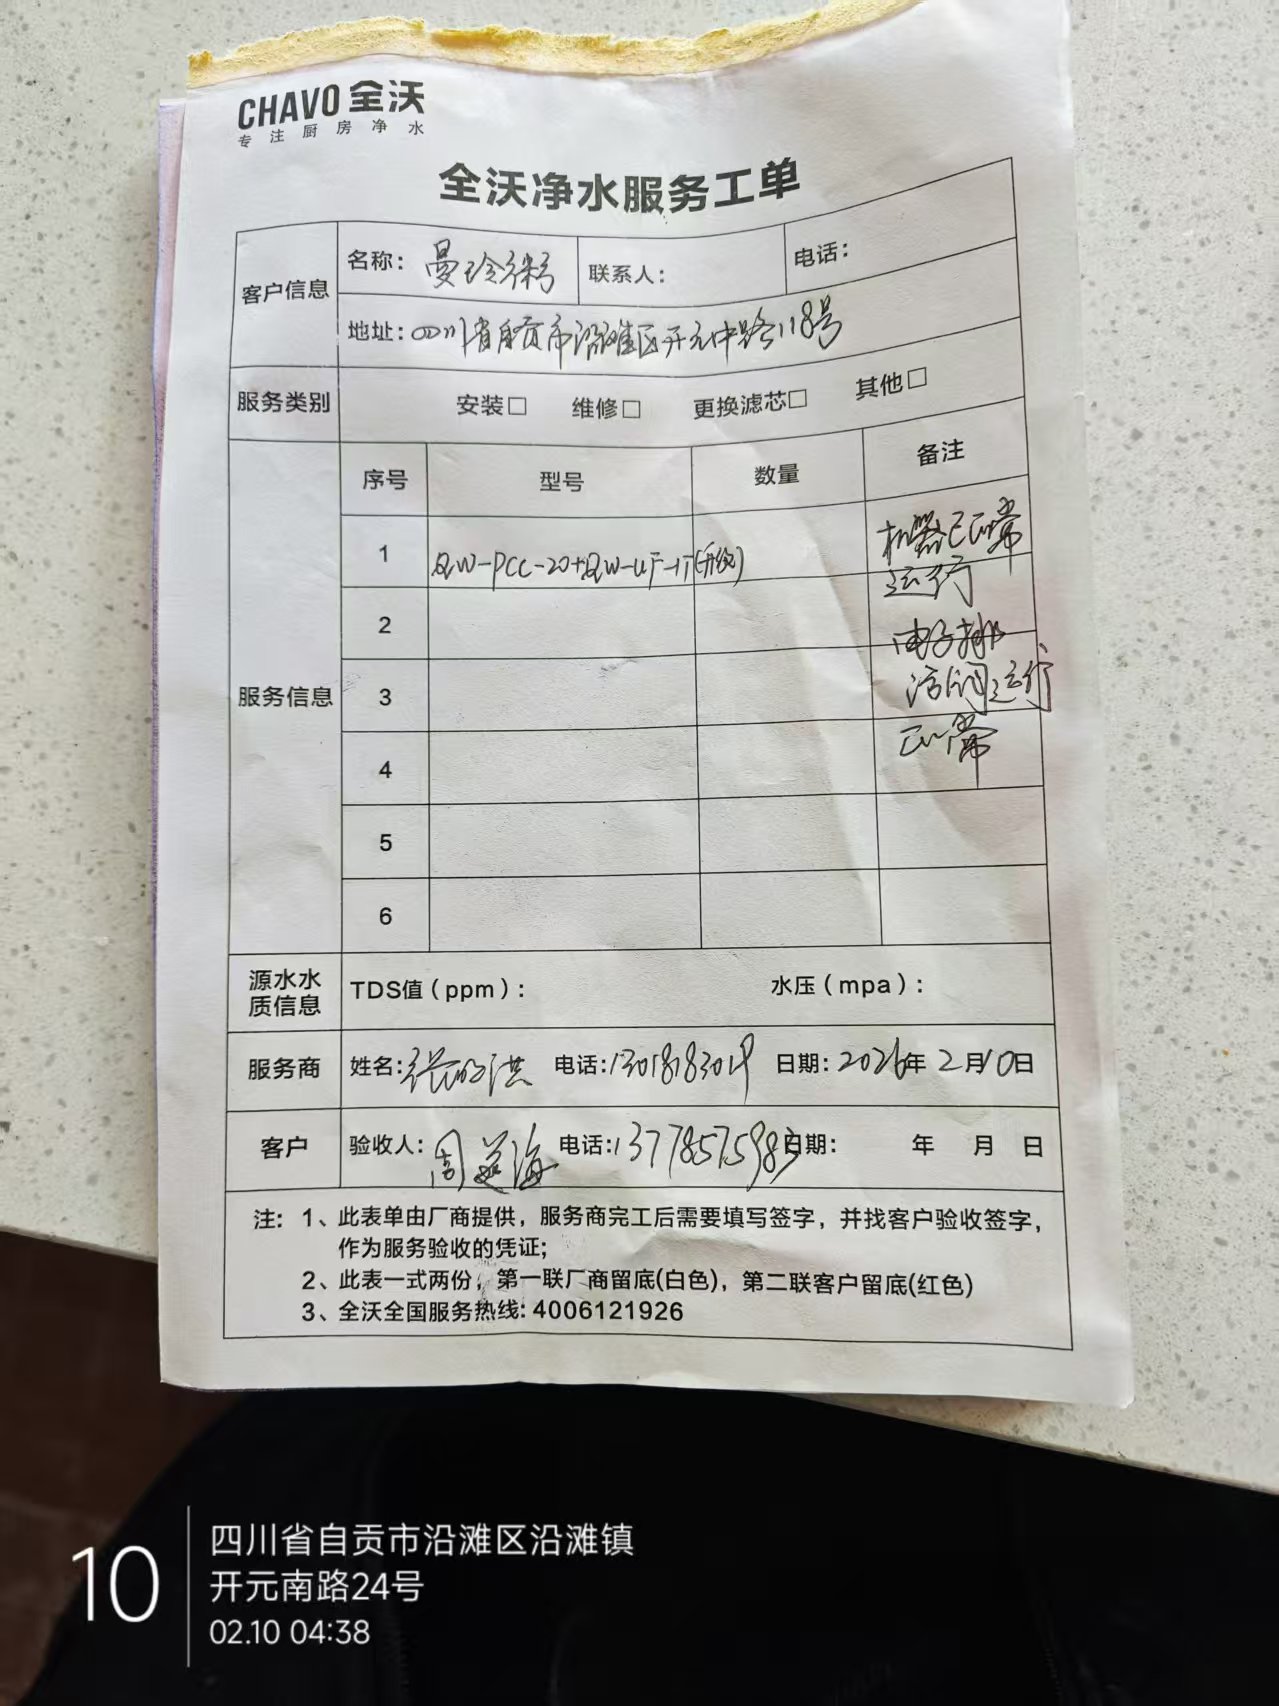 CHAVO 全沃
专注厨房净水
全沃净水服务工单
客户信息 名称：曼玲粥 联系人： 电话：
地址：四川省自贡市沿滩区开元中路118号
服务类别 安装□ 维修□ 更换滤芯□ 其他□
服务信息 序号 型号 数量 备注
1 QW-PCC-20+QW-UF-1T(升级) 机器已正常
运行
2 电子排
3 污阀运行
正常
4
5
6
源水水质信息 TDS值（ppm）： 水压（mpa）：
服务商 姓名： 电话： 日期：2026年2月10日
客户 验收人：周 海 电话：13778575983 日期： 年 月 日
注：1、此表单由厂商提供，服务商完工后需要填写签字，并找客户验收签字，
作为服务验收的凭证；
2、此表一式两份，第一联厂商留底(白色)，第二联客户留底(红色)
3、全沃全国服务热线：4006121926
10
四川省自贡市沿滩区沿滩镇
开元南路24号
02.10 04:38